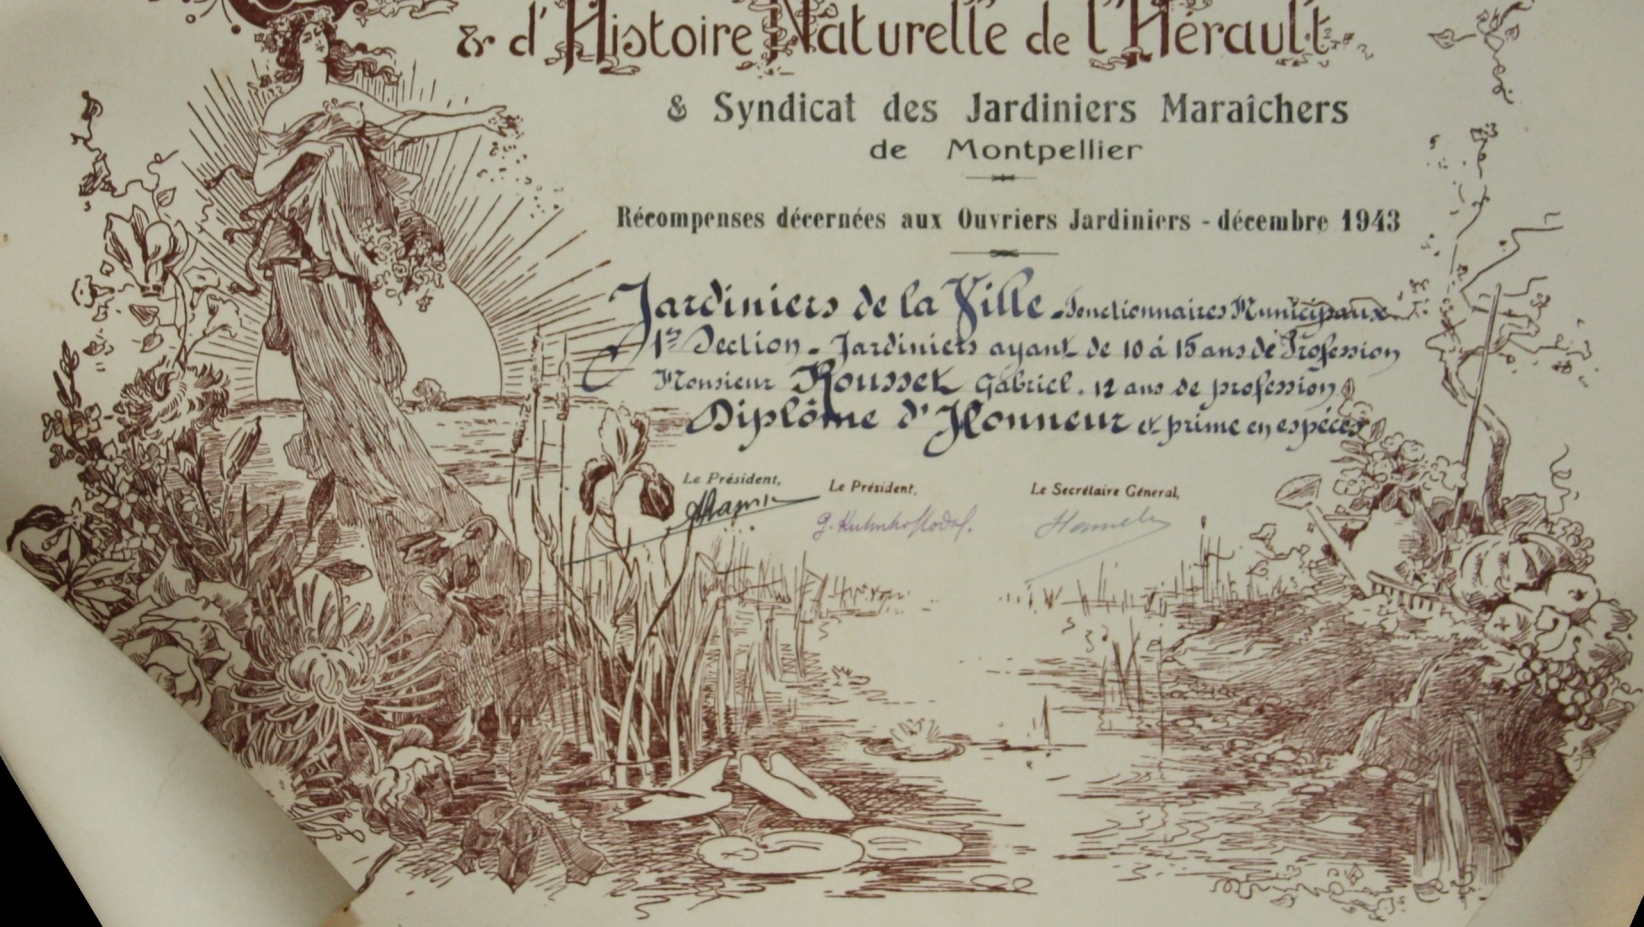 & d'Histoire Naturelle de l'Hérault
& Syndicat des Jardiniers Maraîchers
de Montpellier
Récompenses décernées aux Ouvriers Jardiniers - décembre 1943
Jardiniers de la Ville - Fonctionnaires Municipaux
1re Section - Jardiniers ayant de 10 à 15 ans de Profession
Monsieur Rousset Gabriel. 12 ans de profession
Diplôme d'Honneur et prime en espèces
Le Président, Le Président, Le Secrétaire Général,